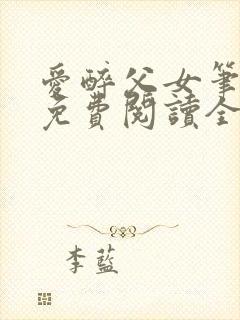 愛醉父女筆
免費閱讀全
李藍